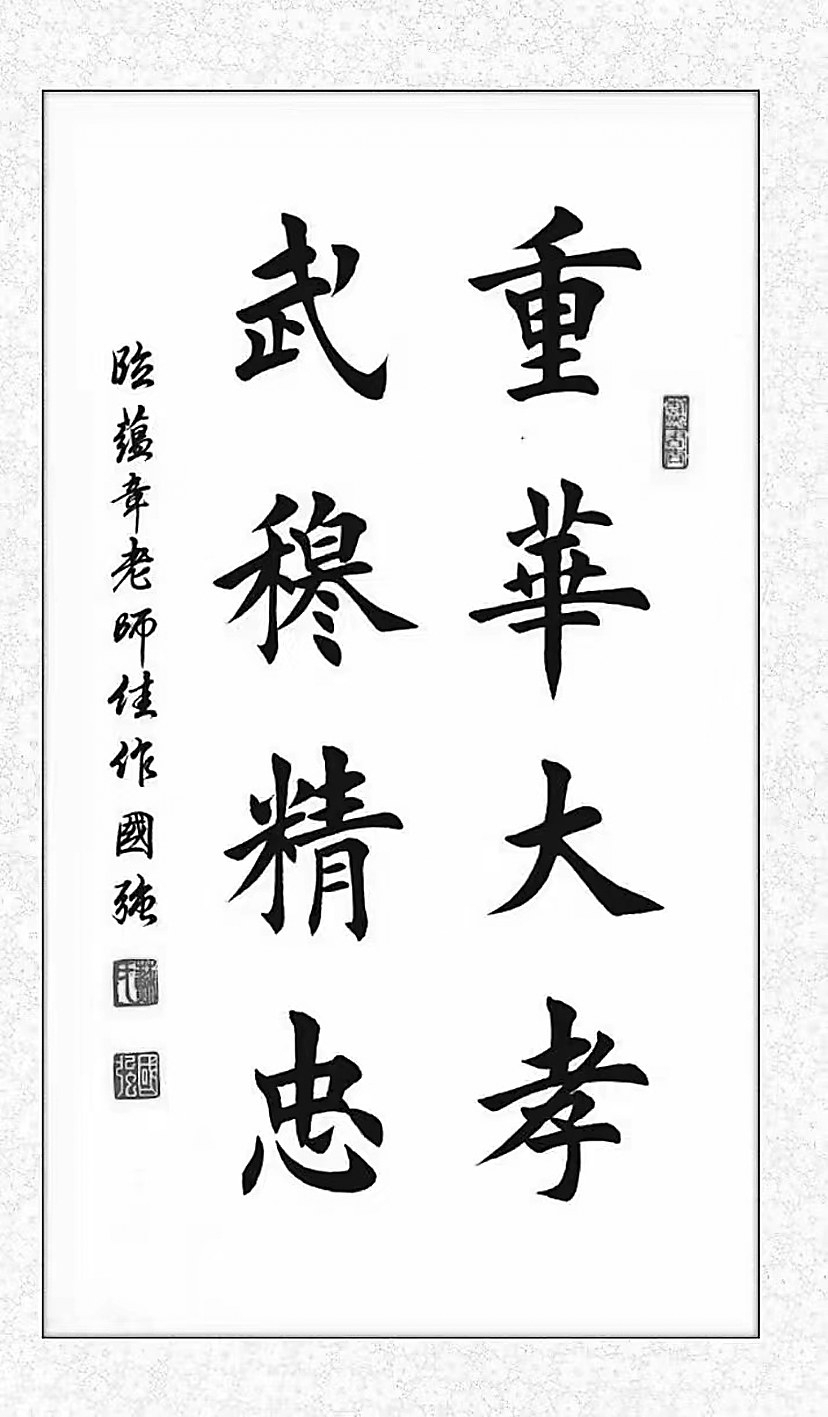 重華大孝
武穆精忠
臨蘊章老師佳作國強